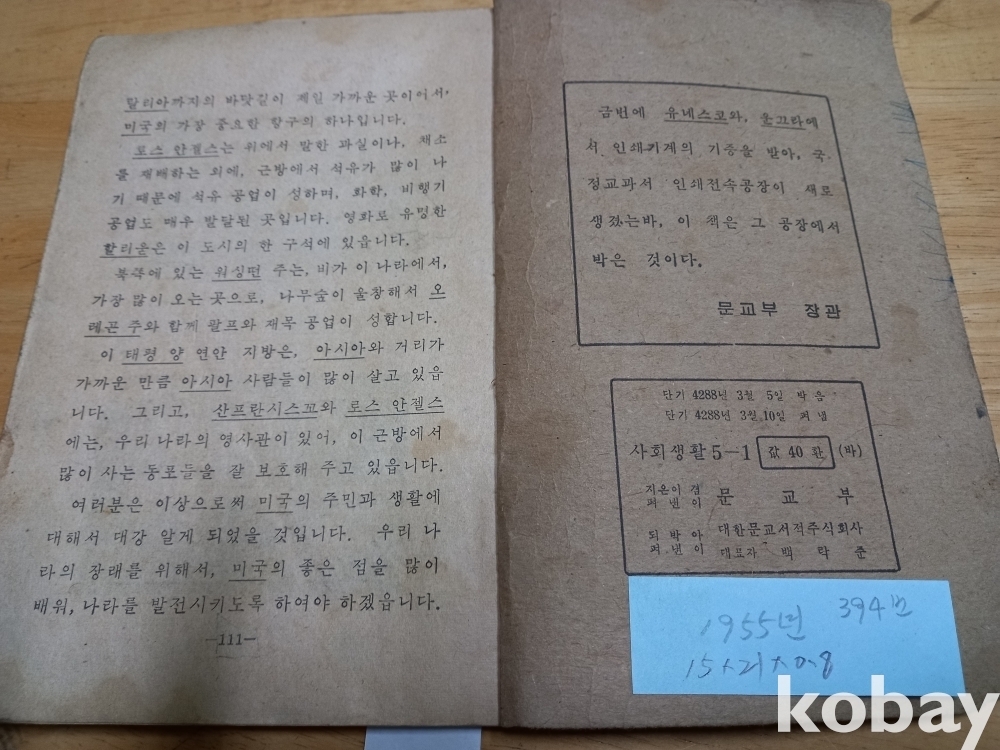 랄리아까지의 바닷길이 제일 가까운 곳이어서,
미국의 가장 중요한 항구의 하나입니다.
로스 안젤스는 위에서 말한 과실이나, 채소
를 재배하는 외에, 근방에서 석유가 많이 나
기 때문에 석유 공업이 성하며, 화학, 비행기
공업도 매우 발달된 곳입니다. 영화로 유명한
할리욷은 이 도시의 한 구석에 있읍니다.
북쪽에 있는 워싱턴 주는, 비가 이 나라에서,
가장 많이 오는 곳으로, 나무숲이 울창해서 오
레곤 주와 함께 팔프와 재목 공업이 성합니다.
이 태평 양 연안 지방은, 아시아와 거리가
가까운 만큼 아시아 사람들이 많이 살고 있읍
니다. 그리고, 산프란시스꼬와 로스 안젤스
에는, 우리 나라의 영사관이 있어, 이 근방에서
많이 사는 동포들을 잘 보호해 주고 있읍니다.
여러분은 이상으로써 미국의 주민과 생활에
대해서 대강 알게 되었을 것입니다. 우리 나
라의 장래를 위해서, 미국의 좋은 점을 많이
배워, 나라를 발전시키도록 하여야 하겠읍니다.
—111—
금번에 유네스코와, 운끄라에
서 인쇄기계의 기증을 받아, 국
정교과서 인쇄전속공장이 새로
생겼는바, 이 책은 그 공장에서
박은 것이다.
문교부 장관
단기 4288년 3월 5일 박음
단기 4288년 3월 10일 펴냄
사회생활 5—1 값 40환 (바)
지은이 겸
펴낸이 문교부
되박아
펴낸이 대한문교서적주식회사
대표자 백락준
1955년 394번
15×21×0.8
kobay